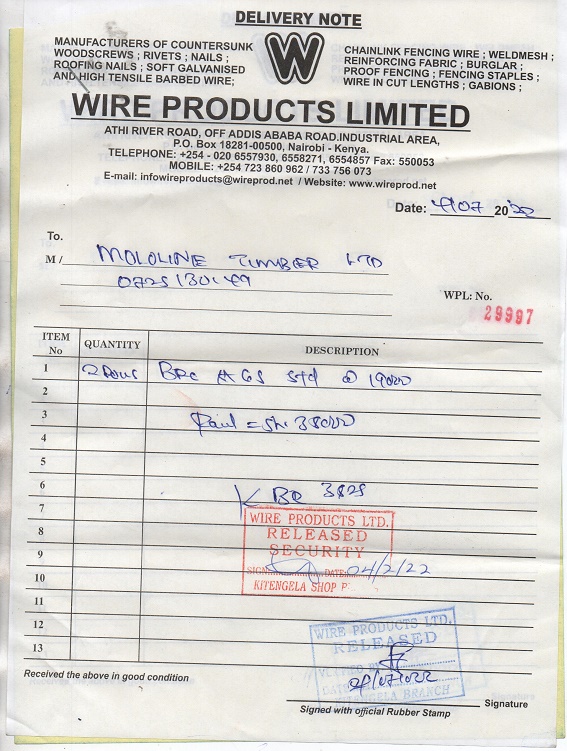 DELIVERY NOTE
MANUFACTURERS OF COUNTERSUNK
WOODSCREWS ; RIVETS ; NAILS ;
ROOFING NAILS ; SOFT GALVANISED
AND HIGH TENSILE BARBED WIRE;
W
CHAINLINK FENCING WIRE ; WELDMESH ;
REINFORCING FABRIC ; BURGLAR ;
PROOF FENCING ; FENCING STAPLES ;
WIRE IN CUT LENGTHS ; GABIONS ;
WIRE PRODUCTS LIMITED
ATHI RIVER ROAD, OFF ADDIS ABABA ROAD.INDUSTRIAL AREA,
P.O. Box 18281-00500, Nairobi - Kenya.
TELEPHONE: +254 - 020 6557930, 6558271, 6554857 Fax: 550053
MOBILE: +254 723 860 962 / 733 756 073
E-mail: infowireproducts@wireprod.net / Website: www.wireprod.net
Date: 4/07 20
To.
M / MOLOLINE TIMBER LTD
0725130149
WPL: No.
29997
ITEM No QUANTITY DESCRIPTION
1 2 Rolls BRC A 65 Std @ 19000
2
3 Paid = Sh. 38000
4
5
6
7
WIRE PRODUCTS LTD.
8 RELEASED
9 SECURITY
10 SIGN DATE: 04/2/22
KITENGELA SHOP
11
12 WIRE PRODUCTS LTD.
13 RELEASED
DATE
KITENGELA BRANCH
Received the above in good condition
Signature
Signed with official Rubber Stamp